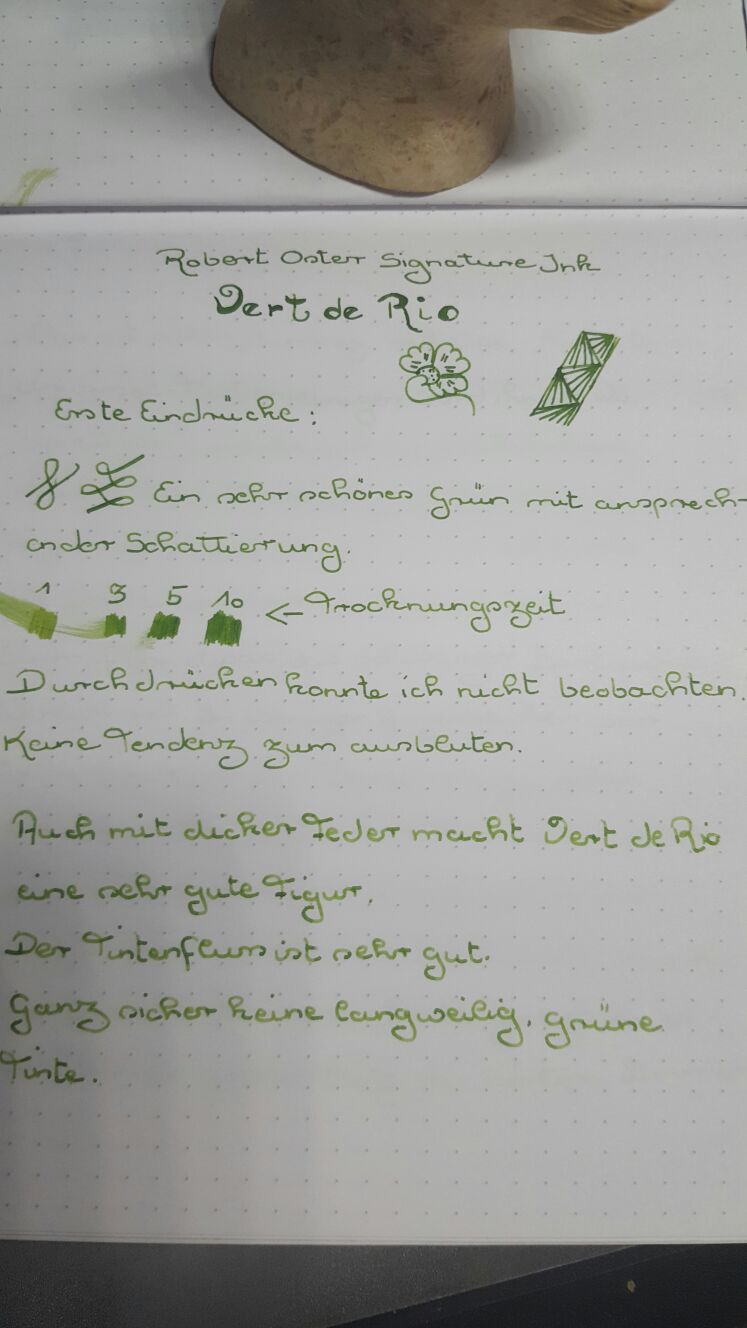 Robert Oster Signature Ink
Vert de Rio
Erste Eindrücke:
Ein sehr schönes Grün mit ansprech-
ender Schattierung.
1 3 5 10 ← Trocknungszeit
Durchdrücken konnte ich nicht beobachten.
Keine Tendenz zum ausbluten.
Auch mit dicker Feder macht Vert de Rio
eine sehr gute Figur.
Der Tintenfluss ist sehr gut.
Ganz sicher keine langweilig, grüne
Tinte.